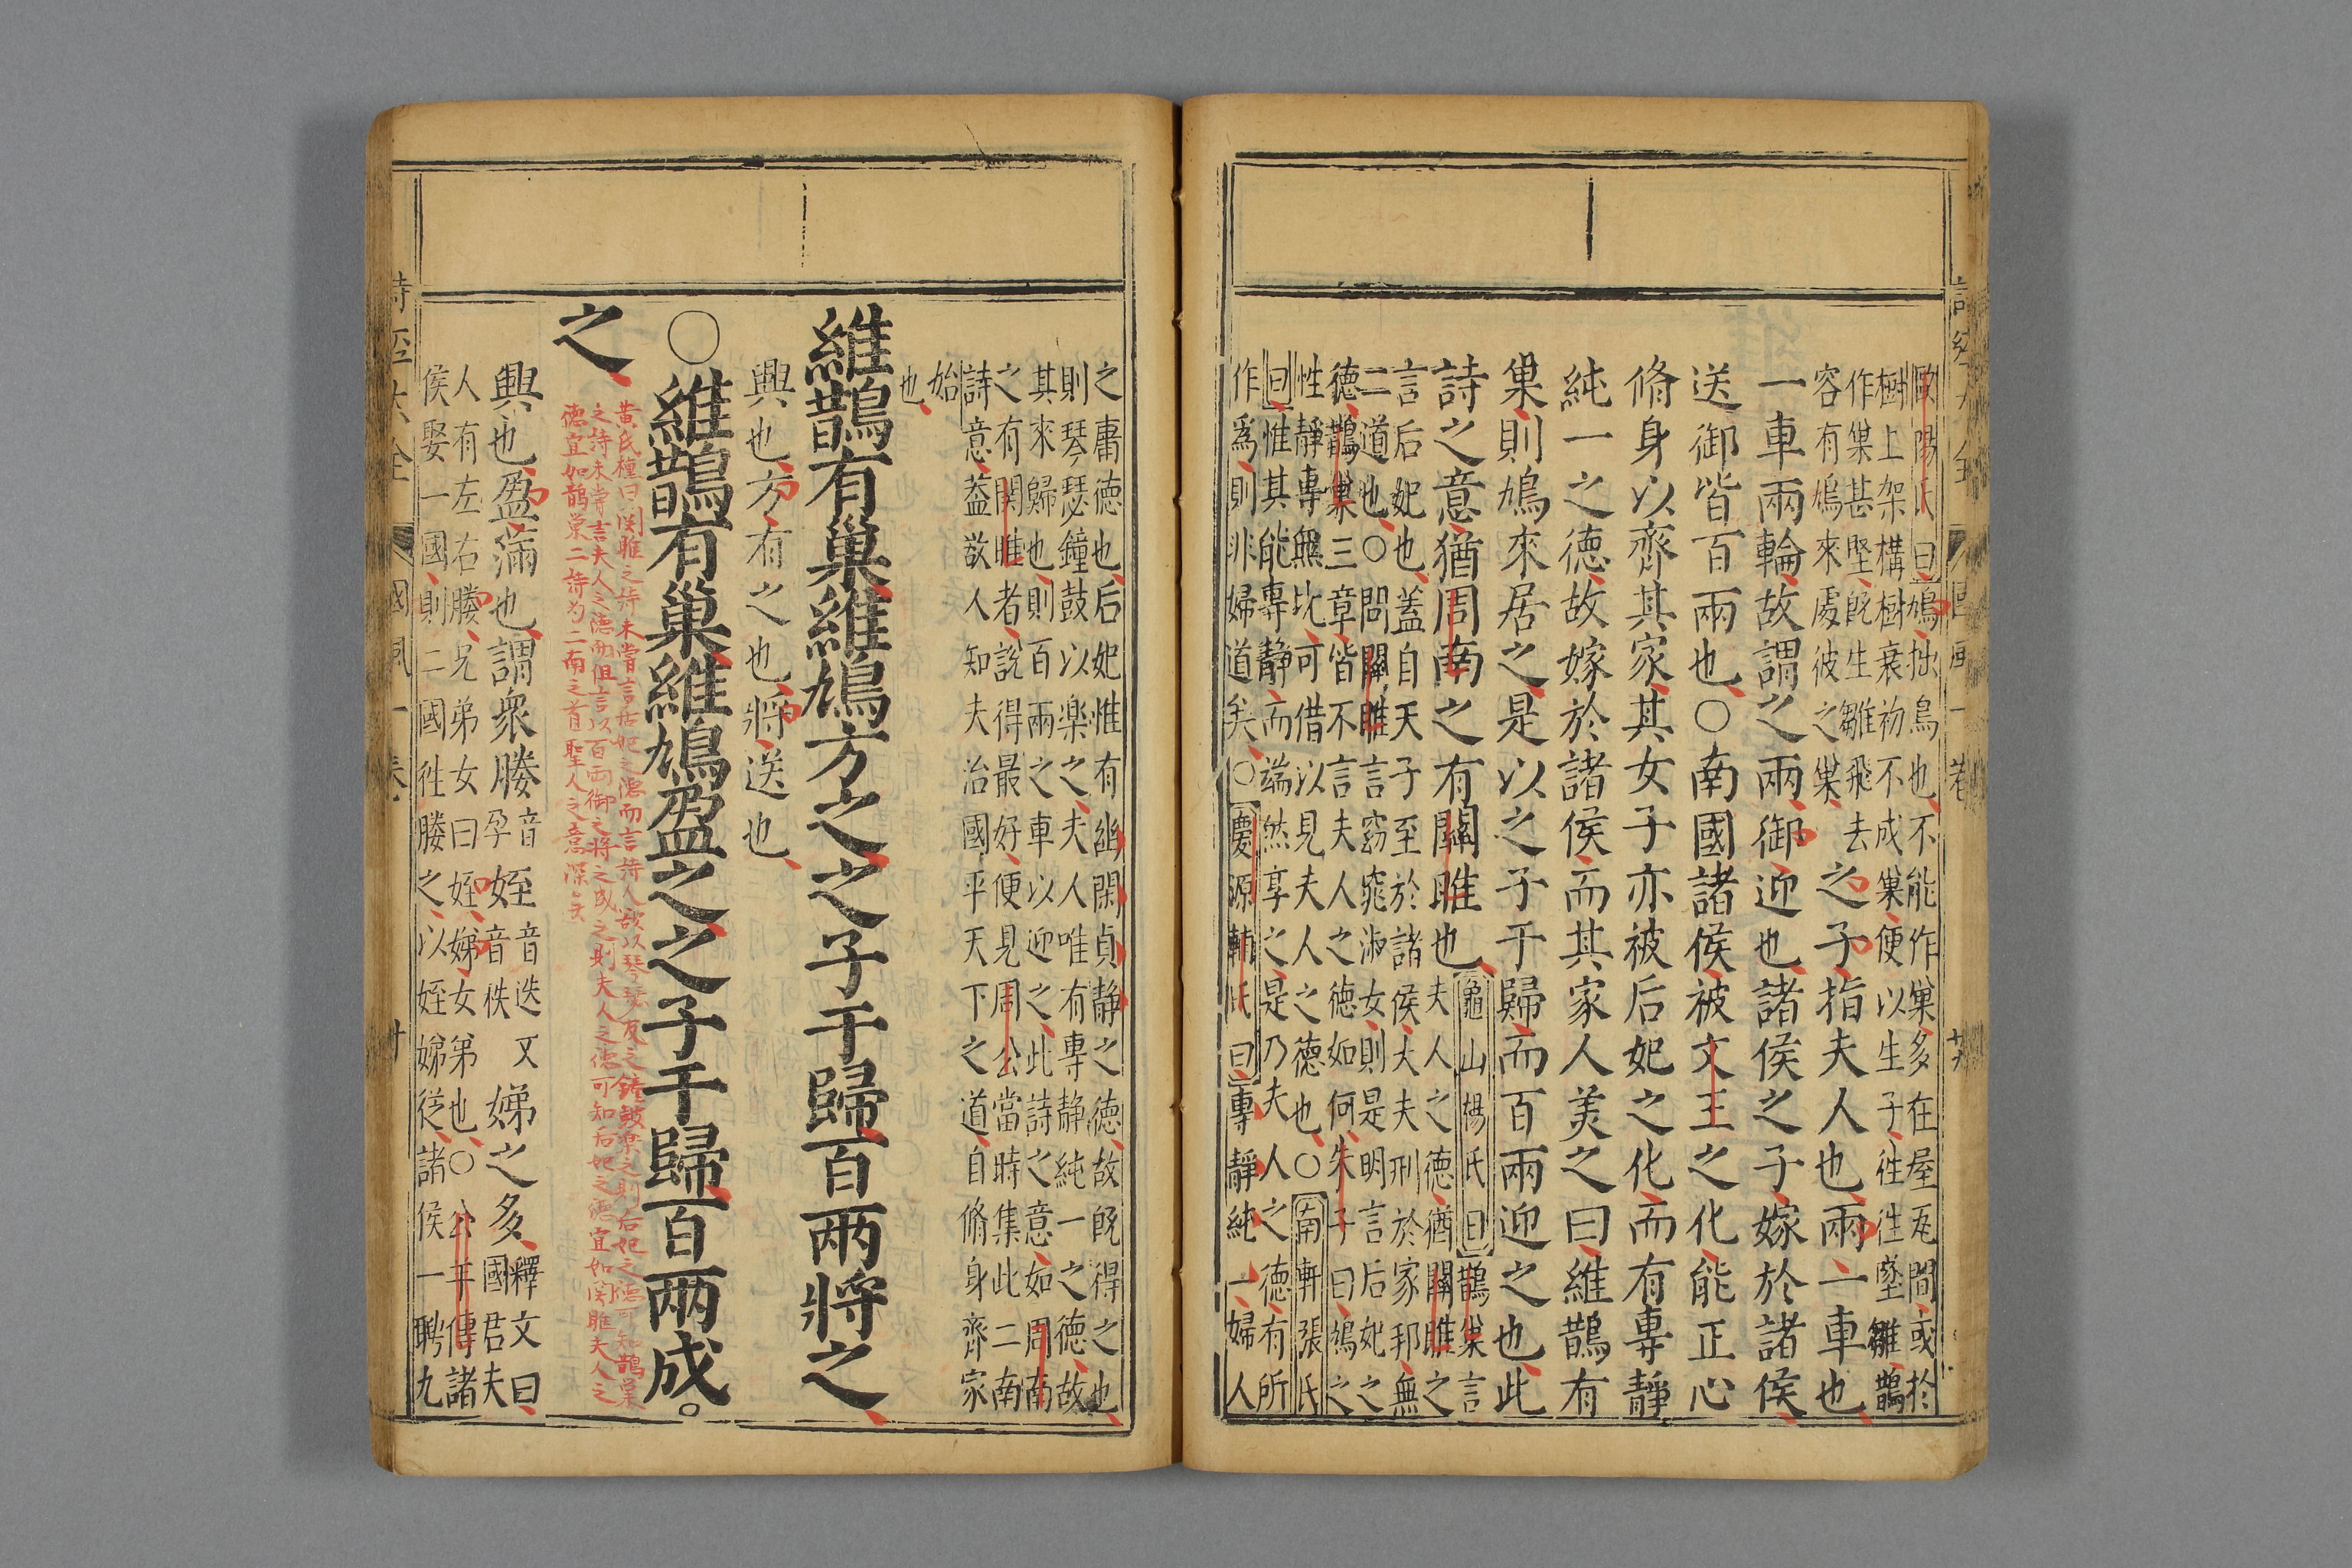 歐陽氏曰鳩拙鳥也不能作巢多在屋瓦間或於
樹上架構樹衰初不成巢便以生子往往墜雛鵲
作巢甚堅既生雛飛去
容有鳩來處彼之巢
之子指夫人也兩一車也
一車兩輪故謂之兩御迎也諸侯之子嫁於諸侯
送御皆百兩也○南國諸侯被文王之化能正心
脩身以齊其家其女子亦被后妃之化而有專靜
純一之德故嫁於諸侯而其家人美之曰維鵲有
巢則鳩來居之是以之子于歸而百兩迎之也此
詩之意猶周南之有關雎也
龜山楊氏曰鵲巢言
夫人之德猶關雎之
言后妃也蓋自天子至於諸侯大夫刑於家邦無
二道也○問關雎言窈窕淑女則是明言后妃之
德鵲巢三章皆不言夫人之德如何朱子曰鳩之
性靜專無比可借以見夫人之德也○南軒張氏
曰惟其能專靜而端然享之是乃夫人之德有所
作為則非婦道矣○慶源輔氏曰專靜純一婦人
之庸德也后妃惟有幽閑貞靜之德故既得之也
則琴瑟鐘鼓以樂之夫人唯有專靜純一之德故
其來歸也則百兩之車以迎之此詩之意如周南
之有關雎者說得最好便見周公當時集此二南
詩意蓋欲人知夫治國平天下之道自脩身齊家
始
也
維鵲有巢維鳩方之之子于歸百兩將之
興也方有之也將送也
○維鵲有巢維鳩盈之之子于歸百兩成。
之
黃氏櫄曰関雎之詩未嘗言后妃之德而言詩人欲以琴瑟友之鐘皷樂之則后妃之德可知鵲巢
之詩未嘗言夫人之德而但言以百兩御之將之成之則夫人之德可知后妃之德宜如関雎夫人之
德宜如鵲巢二詩为二南之首聖人之意深矣
興也盈滿也謂衆媵
音
孕
姪
音迭又
音秩
娣之多
釋文曰
國君夫
人有左右媵兄弟女曰姪娣女弟也○公羊傳諸
侯娶一國則二國往媵之以姪娣從諸侯一聘九